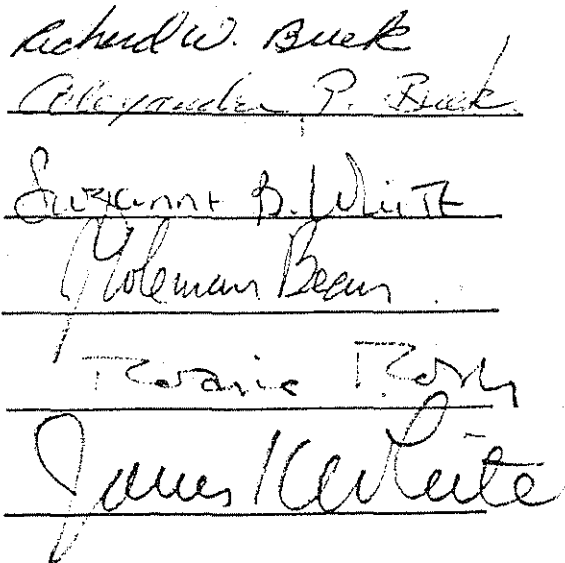 Richard W. Buek
Alexander P. Buek
Suzanne B. White
J Coleman Bean
Rosanie
James K White